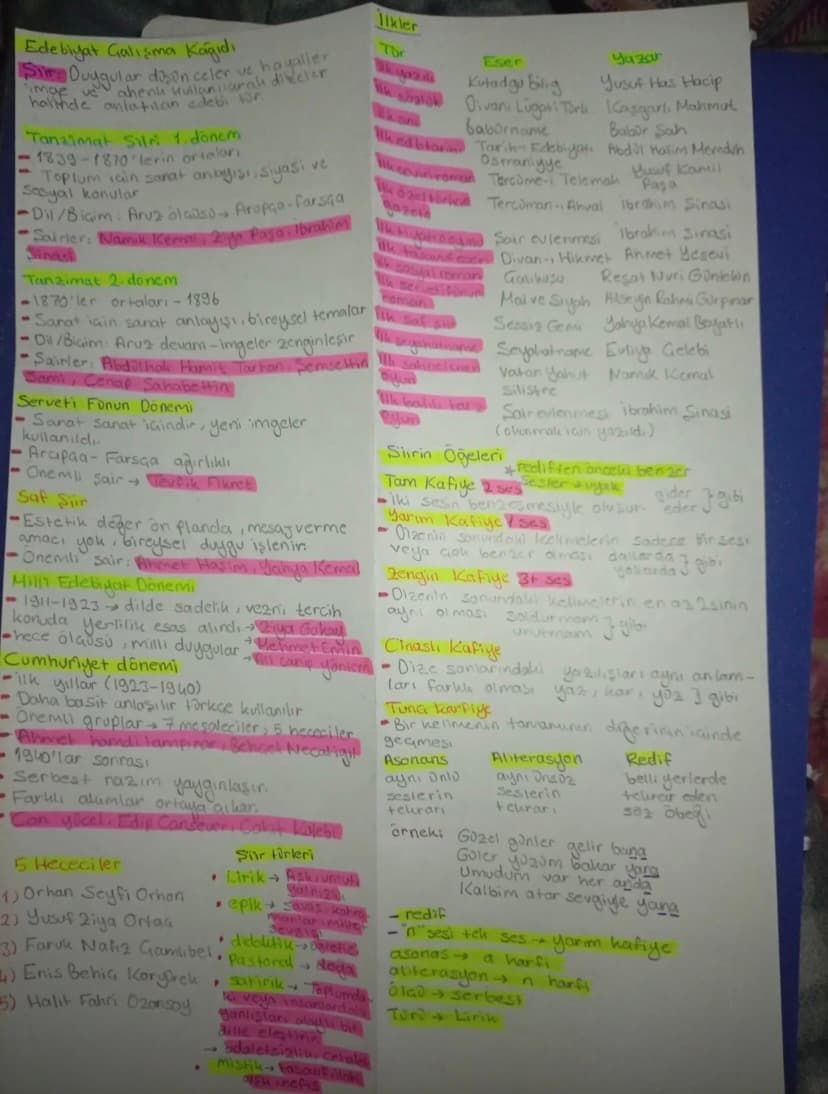 Edebiyat Çalışma Kağıdı
Şiir: Duygular düşünceler ve hayaller
imge ve ahenk kullanılarak dizeler
halinde anlatılan edebi tür.
Tanzimat Şiiri 1. dönem
- 1839-1870'lerin ortaları
- Toplum için sanat anlayışı, siyasi ve
sosyal konular
- Dil/Biçim: Aruz ölçüsü → Arapça-Farsça
- Şairler: Namık Kemal, Ziya Paşa, İbrahim
Şinasi
Tanzimat 2. dönem
- 1870'ler ortaları - 1896
- Sanat için sanat anlayışı, bireysel temalar
- Dil/Biçim: Aruz devam - imgeler zenginleşir
- Şairler: Abdülhak Hamit Tarhan, Şemsettin
Sami, Cenap Şahabettin
Serveti Fünun Dönemi
- Sanat sanat içindir, yeni imgeler
kullanıldı.
- Arapça - Farsça ağırlıklı
- Önemli şair → Tevfik Fikret
Saf Şiir
- Estetik değer ön planda, mesaj verme
amacı yok, bireysel duygu işlenir.
- Önemli şair: Ahmet Haşim, Yahya Kemal
Milli Edebiyat Dönemi
- 1911-1923 → dilde sadelik, vezni tercih
konuda yerlilik esas alındı → Ziya Gökalp
- hece ölçüsü, milli duygular → Mehmet Emin
→ Ali Canip Yöntem
Cumhuriyet dönemi
- İlk yıllar (1923-1940)
- Daha basit anlaşılır türkçe kullanılır
- Önemli gruplar → 7 meşaleciler, 5 hececiler
- Ahmet hamdi tanpınar, Behçet Necatigil
- 1940'lar sonrası
- Serbest nazım yaygınlaşır.
- Farklı akımlar ortaya çıkar.
- Can yücel, Edip Cansever, Cahit Külebi
5 Hececiler
1) Orhan Seyfi Orhon
2) Yusuf Ziya Ortaç
3) Faruk Nafiz Çamlıbel
4) Enis Behiç Koryürek
5) Halit Fahri Ozansoy
Şiir türleri
• Lirik → Aşk, umut,
yalnızlık
• epik → savaş, kahra
manlık, millet
sevgisi
• didaktik → öğretici
• Pastoral → doğa
• satirik → Toplumda
ki veya insanlardaki
yanlışları alaylı bir
dille eleştirir
→ adaletsizlik, cehalet
• mistik → tasavvuf, ilahi
aşk, nefis
İlkler
Tür Eser Yazar
İlk yazılı Kutadgu Bilig Yusuf Has Hacip
İlk sözlük Divanı Lügati Türk Kaşgarlı Mahmut
İlk anı babürname Babür Şah
İlk edb tarihi Tarih-i Edebiyatı Abdül Halim Memduh
Osmaniyye
İlk çeviri roman Tercüme-i Telemak Yusuf Kamil
Paşa
İlk özel türkçe Tercüman-ı Ahval İbrahim Şinasi
gazete
İlk tiyatro oyunu Şair evlenmesi İbrahim Şinasi
İlk tasavvuf eseri Divan-ı Hikmet Ahmet Yesevi
İlk sosyal roman Çalıkuşu Reşat Nuri Güntekin
İlk servetifünun Mai ve Siyah Hüseyin Rahmi Gürpınar
roman
İlk saf şiir Sessiz Gemi Yahya Kemal Beyatlı
İlk seyahatname Seyahatname Evliya Çelebi
İlk sahnelenen Vatan Yahut Namık Kemal
oyun Silistre
İlk batılı tarz Şair evlenmesi İbrahim Şinasi
oyun (okunmak için yazıldı.)
Şiirin Öğeleri
* rediften önceki benzer
sesler → uyak
Tam Kafiye 2 ses
- İki sesin benzeşmesiyle oluşur. gider
eder } gibi
Yarım Kafiye 1 ses
- Dizenin sonundaki kelimelerin sadece bir sesi
veya çok benzer olması dallarda
yollarda } gibi
Zengin Kafiye 3+ ses
- Dizenin sonundaki kelimelerin en az 2sinin
aynı olması saldurmam
unutmam } gibi
Cinaslı Kafiye
- Dize sonlarındaki yazılışları aynı anlam-
ları farklı olması yaz, kar, yüz } gibi
Tunç Karfiye
- Bir kelimenin tamamının diğerinin içinde
geçmesi
Asonans Aliterasyon Redif
aynı ünlü aynı ünsüz belli yerlerde
seslerin seslerin tekrar eden
tekrarı tekrarı söz öbeği
örnek: Güzel günler gelir bana
Güler yüzüm bakar yana
Umudum var her anda
Kalbim atar sevgiye yana
- redif
- "n" sesi tek ses → yarım kafiye
asonas → a harfi
aliterasyon → n harfi
ölçü → serbest
Türü → Lirik